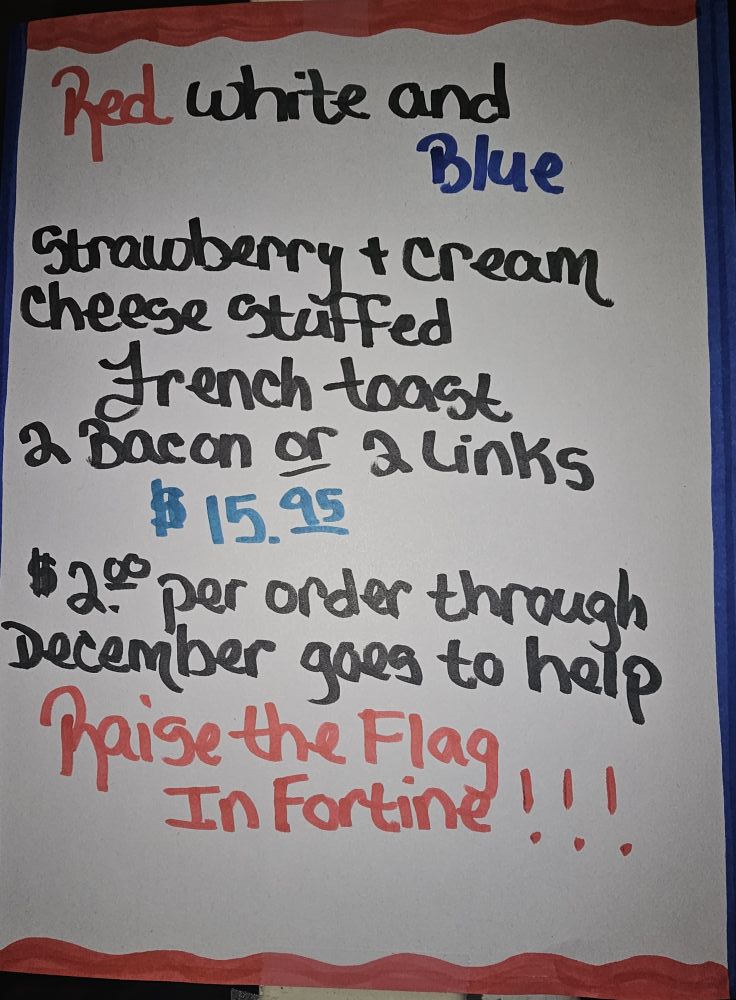 Red white and
Blue
Strawberry + cream
cheese stuffed
French toast
2 Bacon or 2 Links
$15.95
$2.00 per order through
December goes to help
Raise the Flag
In Fortine!!!